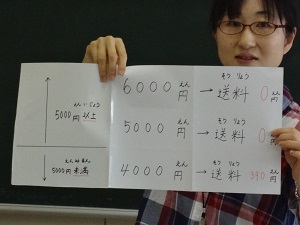 えん いじょう
5000円 以上
えん みまん
5000円 未満
6000 円 えん
5000 円 えん
4000 円 えん
そうりょう
→ 送料 0 円 えん
そうりょう
→ 送料 0 円 えん
そうりょう
→ 送料 390 円 えん